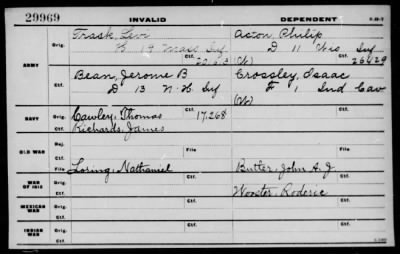 29969 INVALID DEPENDENT
ARMY
Orig. Trask, Levi Acton, Philip
K 19 Mass Inf D 11 Wis Inf
Ctf. (W) 26429
Orig. Bean, Jerome B Crossley, Isaac
D 13 N.H. Inf F 1 Ind Cav
Ctf. (W)
NAVY
Orig. Cawley, Thomas 17,268
Ctf. Richards, James
OLD WAR
Rej.
Ctf. File File
File Loring, Nathaniel Butler, John A. J
WAR OF 1812
Orig. Wooster, Roderic
Ctf.
MEXICAN WAR
Orig.
Ctf.
INDIAN WAR
Orig.
Ctf.